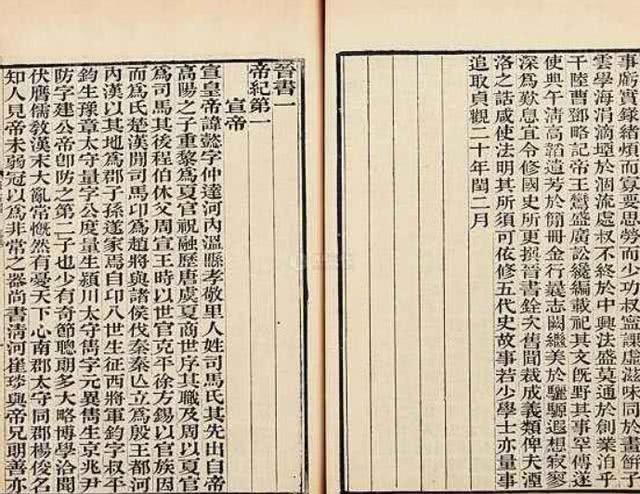 事虧實錄緒煩而寡要思勞而少功叔寧課虛滋味同於畫餅子
雲學海涓滴堙於涸流處叔不終於中興法盛莫通於創業洎乎
干陸曹鄧略記帝王鸞盛廣訟纔編載祀其文旣野其事罕傳遂
使典午淸高韜遺芳於簡冊金行曩志闕繼美於驪騵遐想寂寥
深爲歎息宜令修國史所更撰晉書銓次舊聞裁成義類俾夫湮
洛之誥咸使法明其所須可依修五代史故事若少學士亦量事
追取貞觀二十年閏二月
晉書一
帝紀第一
宣帝
宣皇帝諱懿字仲達河內溫縣孝敬里人姓司馬氏其先出自帝
高陽之子重黎爲夏官祝融歷唐虞夏商世序其職及周以夏官
爲司馬其後程伯休父周宣王時以世官克平徐方錫以官族因
而爲氏楚漢間司馬卬爲趙將與諸侯伐秦秦亡立爲殷王都河
內漢以其地爲郡子孫遂家焉自卬八世生征西將軍鈞字叔平
鈞生豫章太守量字公度量生潁川太守儁字元異儁生京兆尹
防字建公帝卽防之第二子也少有奇節聰朗多大略博學洽聞
伏膺儒敎漢末大亂常慨然有憂天下心南郡太守同郡楊俊名
知人見帝未弱冠以爲非常之器尚書淸河崔琰與帝兄朗善亦